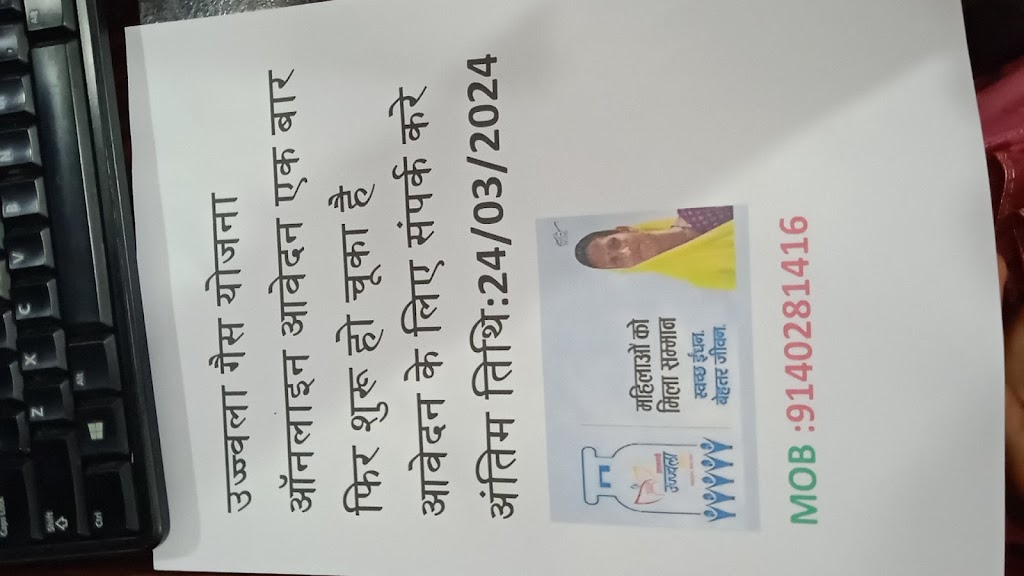 उज्ज्वला गैस योजना
ऑनलाइन आवेदन एक बार
फिर शुरू हो चूका है
आवेदन के लिए संपर्क करे
अंतिम तिथि:24/03/2024
महिलाओं को
मिला सम्मान
स्वच्छ ईंधन,
बेहतर जीवन.
उज्ज्वला
MOB :9140281416
Z
X
C
V
B
N
Alt
Ctrl
Shift